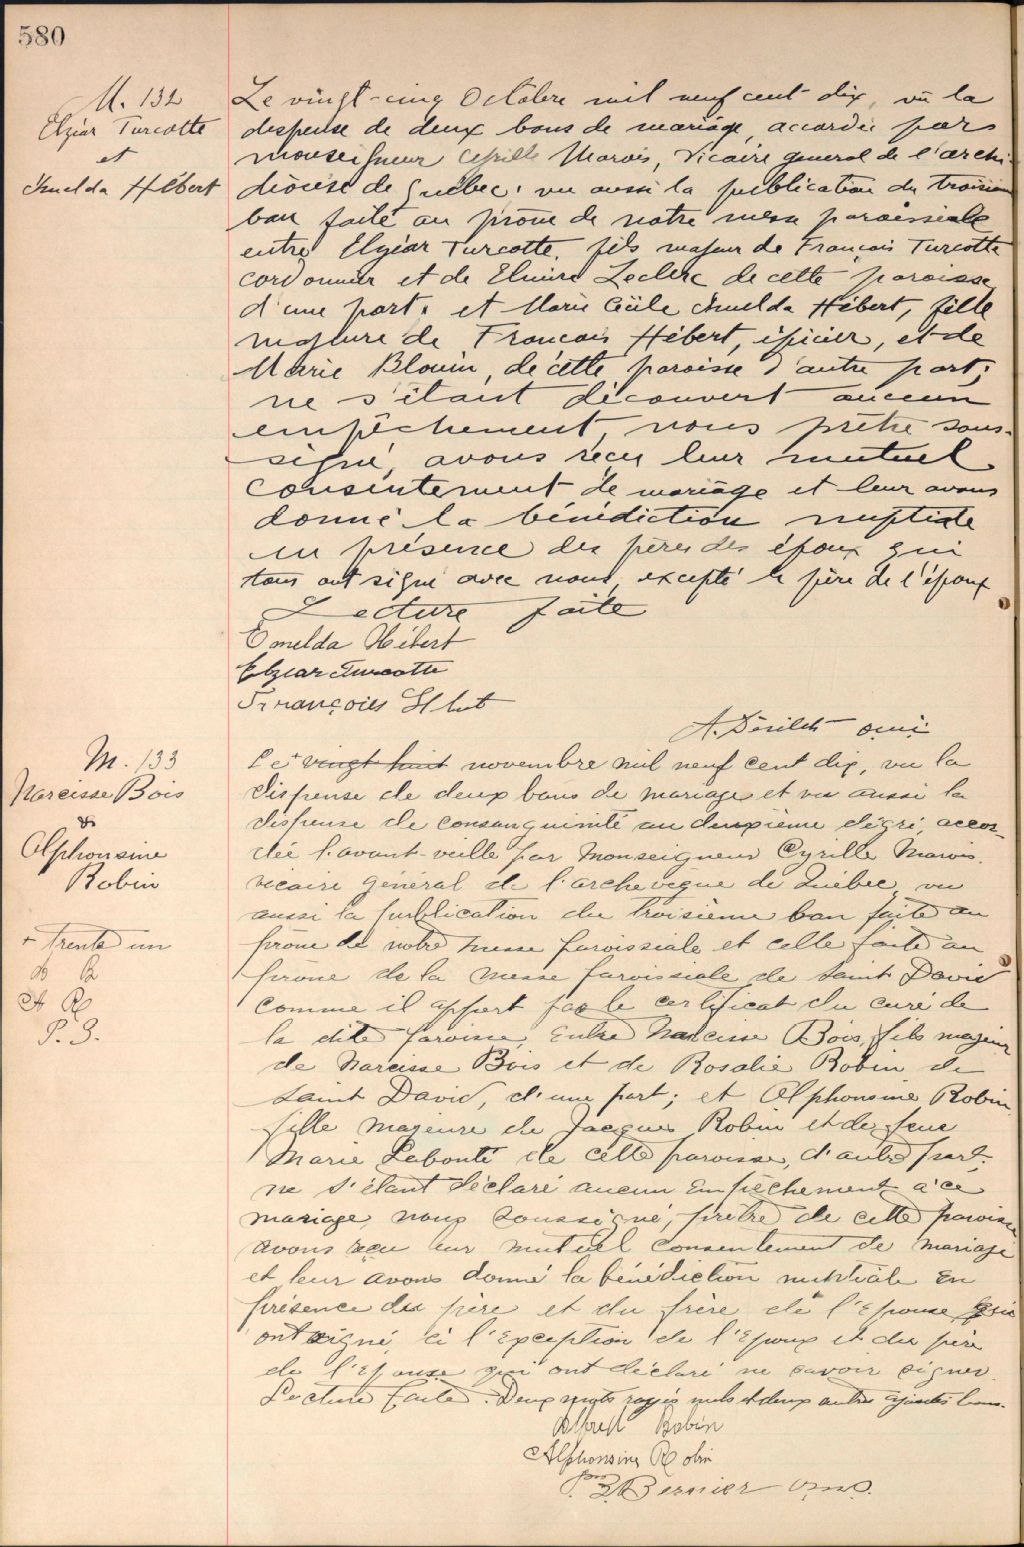 580
M. 132
Elzéar Turcotte
et
Imelda Hébert
Le vingt-cinq Octobre mil neuf cent dix, vû la
dispense de deux bans de mariage, accordée par
monseigneur Cyrille Marois, Vicaire general de l'archi-
diocèse de Québec; vu aussi la publication du troisième
ban faite au prône de notre messe paroissiale
entre Elzéar Turcotte, fils majeur de François Turcotte
cordonnier et de Elmire Leclerc de cette paroisse,
d'une part; et Marie Cécile Imelda Hébert, fille
majeure de Francois Hébert, épicier, et de
Marie Blouin, de cette paroisse d'autre part;
ne s'étant découvert aucun
empêchement, nous prêtre sous-
signé, avons reçu leur mutuel
consentement de mariage et leur avons
donné la bénédiction nuptiale
en présence des pères des époux qui
tous ont signé avec nous, excepté le père de l'époux
Lecture faite
Emelda Hébert
Elzear Turcotte
Françoies
A. Désilets o.m.i.
M. 133
Narcisse Bois
&
Alphonsine
Robin
+ trente un
A R
P. B.
Le + vingt huit novembre mil neuf cent dix, vu la
dispense de deux bans de mariage et vu aussi la
dispense de consanguinité au deuxième dégré, accor-
dée l'avant-veille par Monseigneur Cyrille Marois,
vicaire général de l'archevêque de Québec, vu
aussi la publication du troisième ban faite au
prône de notre messe paroissiale et celle faite au
prône de la messe paroissiale de Saint David
comme il appert par le certificat du curé de
la dite paroisse, Entre Narcisse Bois, fils majeur
de Narcisse Bois et de Rosalie Robin de
Saint David, d'une part; et Alphonsine Robin,
fille majeure de Jacques Robin et de feue
Marie Labonté de cette paroisse, d'autre part;
ne s'étant déclaré aucun Empêchement à ce
mariage, nous soussigné, prêtre de cette paroisse
avons reçu leur mutuel consentement de mariage
et leur avons donné la bénédiction nuptiale En
présence du père et du frère de l'Epouse qui
ont signé à l'Exception de l'Epoux et du père
de l'Epouse qui ont déclaré ne savoir signer.
Lecture faite. Deux mots rayés nuls et deux autres ajoutés bons.
Alfred Robin
Alphonsine Robin
P. Bernier o.m.i.